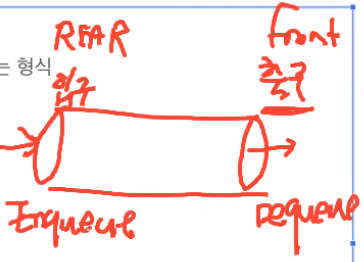 REAR Front
는 형식
입구 출구
Enqueue Dequeue